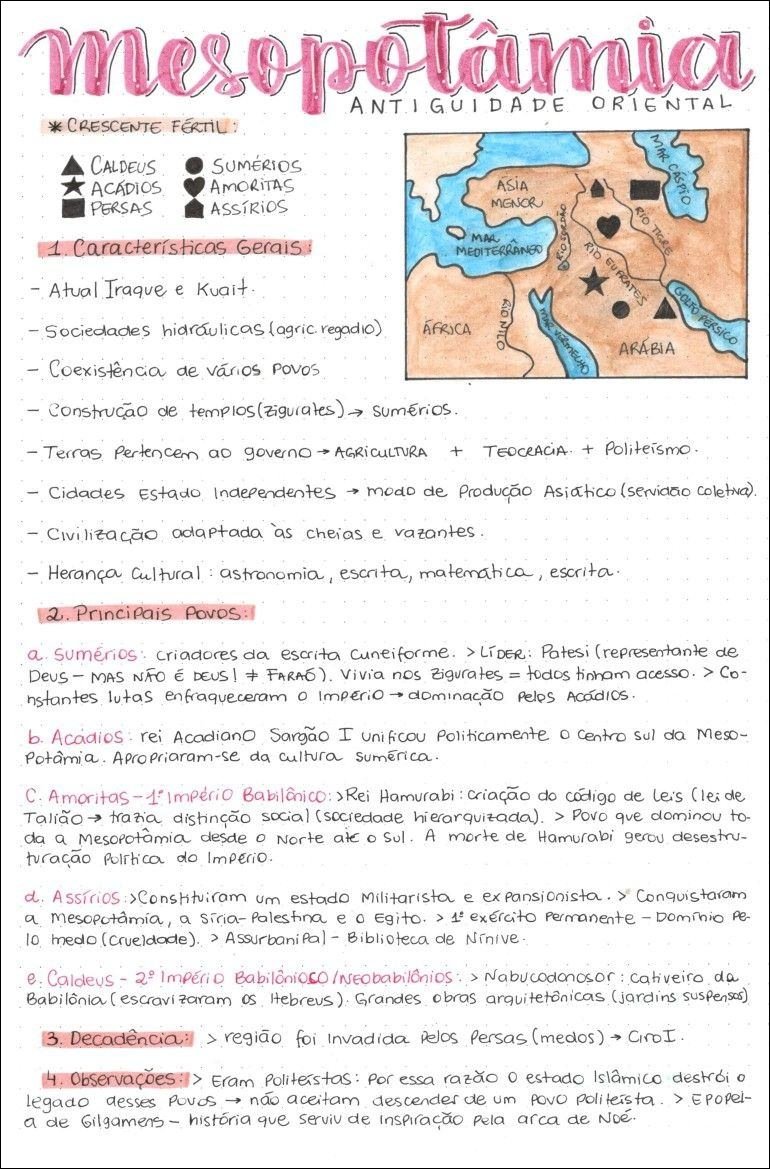 Mesopotâmia
ANTIGUIDADE ORIENTAL
* CRESCENTE FÉRTIL:
CALDEUS SUMÉRIOS
ACÁDIOS AMORITAS
PERSAS ASSÍRIOS
MAR CÁSPIO
ÁSIA
MENOR
RIO TIGRE
MAR
MEDITERRÂNEO
RIO JORDÃO
RIO EUFRATES
GOLFO PÉRSICO
ÁFRICA
RIO NILO
MAR VERMELHO
ARÁBIA
1. Características Gerais:
- Atual Iraque e Kuait.
- Sociedades hidráulicas (agric. regadio)
- Coexistência de vários povos
- Construção de templos (zigurates) → sumérios.
- Terras Pertencem ao governo → AGRICULTURA + TEOCRACIA. + Politeísmo.
- Cidades Estado Independentes → modo de Produção Asiático (servidão coletiva).
- Civilização adaptada às cheias e vazantes.
- Herança Cultural: astronomia, escrita, matemática, escrita.
2. Principais Povos:
a. Sumérios: criadores da escrita cuneiforme. > LÍDER: Patesi (representante de
Deus - MAS NÃO É DEUS! ≠ FARAÓ). Vivia nos zigurates = todos tinham acesso. > Co-
nstantes lutas enfraqueceram o Império → dominação pelos Acádios.
b. Acádios: rei Acadiano Sargão I unificou Politicamente o centro sul da Meso-
Potâmia. Apropriaram-se da cultura sumérica.
C. Amoritas - 1º Império Babilônico: > Rei Hamurabi: criação do código de leis (lei de
Talião → trazia distinção social (sociedade hierarquizada). > Povo que dominou to-
da a Mesopotâmia desde o Norte até o Sul. A morte de Hamurabi gerou desestru-
turação Política do Império.
d. Assírios: > Constituiram um estado Militarista e expansionista. > Conquistaram
a Mesopotâmia, a Síria-Palestina e o Egito. > 1º exército Permanente - Domínio Pe-
lo medo (crueldade). > Assurbanipal - Biblioteca de Nínive.
e. Caldeus - 2º Império Babilônioco/Neobabilônios: > Nabucodonosor: cativeiro da
Babilônia (escravizaram os Hebreus). Grandes obras arquitetônicas (jardins suspensos)
3. Decadência: > região foi invadida pelos Persas (medos) → Ciro I.
4. Observações: > Eram Politeístas: Por essa razão o estado Islâmico destrói o
legado desses Povos → não aceitam descender de um povo politeísta. > Epopei-
a de Gilgamens - história que serviu de inspiração pela arca de Noé.